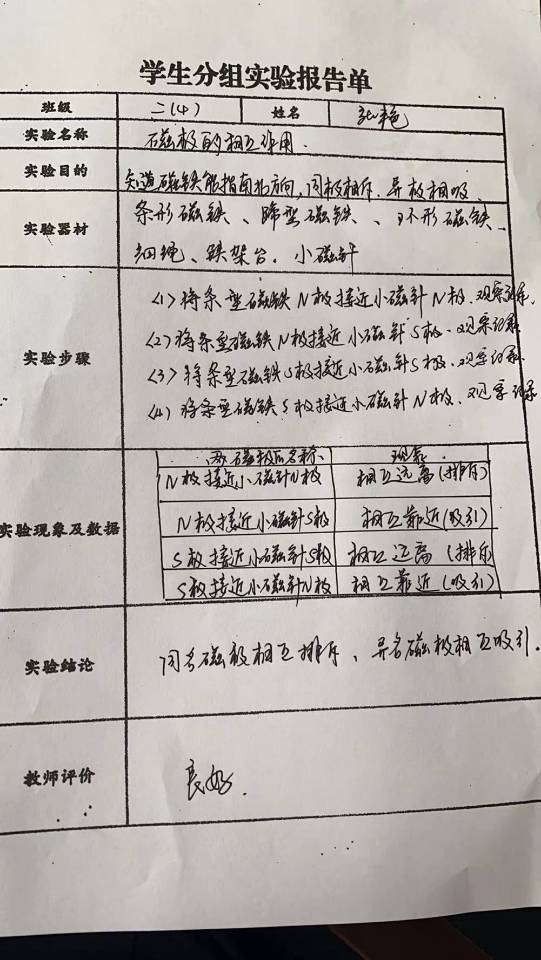 学生分组实验报告单
班级 二(4) 姓名 张艳
实验名称 磁极的相互作用.
实验目的 知道磁铁能指南北方向,同极相斥、异极相吸、
实验器材 条形磁铁、蹄型磁铁、环形磁铁、
细绳、铁架台、小磁针
实验步骤
(1)将条型磁铁N极接近小磁针N极.观察记录.
(2)将条型磁铁N极接近小磁针S极.观察记录
(3)将条型磁铁S极接近小磁针S极.观察记录.
(4)将条型磁铁S极接近小磁针N极.观察记录
实验现象及数据
两磁极名称 现象
N极接近小磁针N极 相互远离(排斥)
N极接近小磁针S极 相互靠近(吸引)
S极接近小磁针S极 相互远离(排斥
S极接近小磁针N极 相互靠近(吸引)
实验结论 同名磁极相互排斥、异名磁极相互吸引.
教师评价 良好.